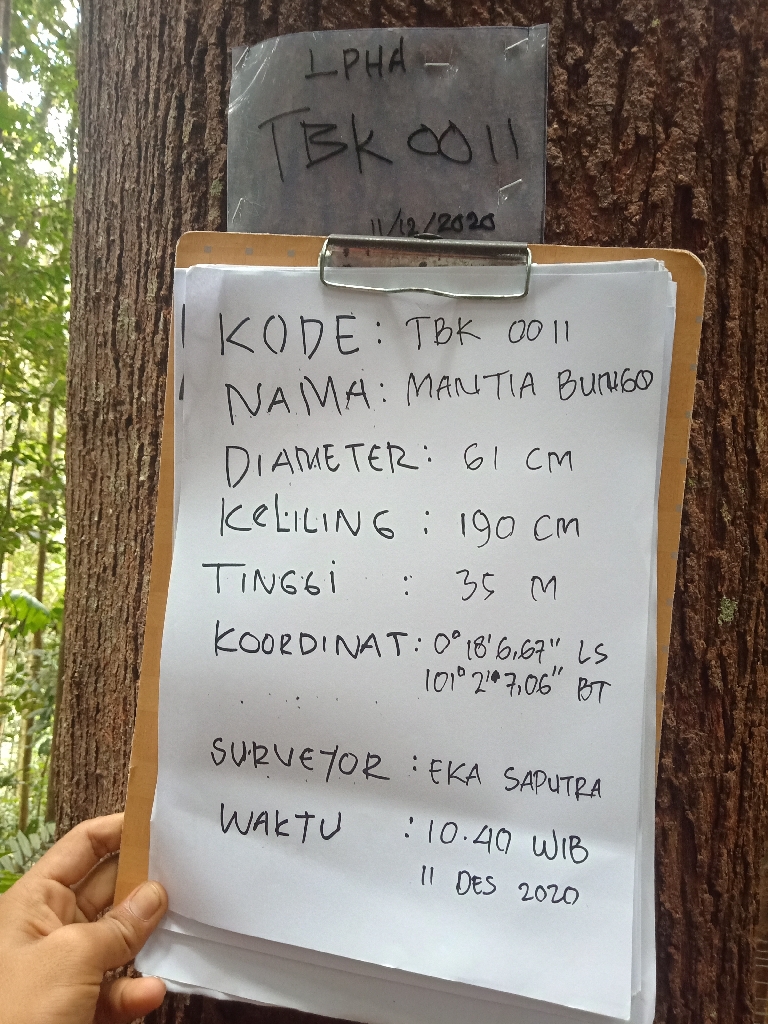 LPHA -
TBK 0011
11/12/2020
KODE : TBK 0011
NAMA : MANTIA BUNGO
DIAMETER : 61 CM
KeLILING : 190 CM
TINGGi : 35 M
KOORDINAT : 0° 18' 6,67" LS
101° 2' 7,06" BT
SURVEYOR : EKA SAPUTRA
WAKTU : 10.40 WIB
11 DES 2020